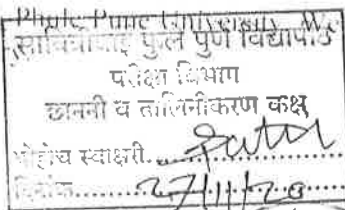 Phule Pune University
सावित्रीबाई फुले पुणे विद्यापीठ
परीक्षा विभाग
छाननी व तालिनीकरण कक्ष
पोहोच स्वाक्षरी
दिनांक 27/11/20